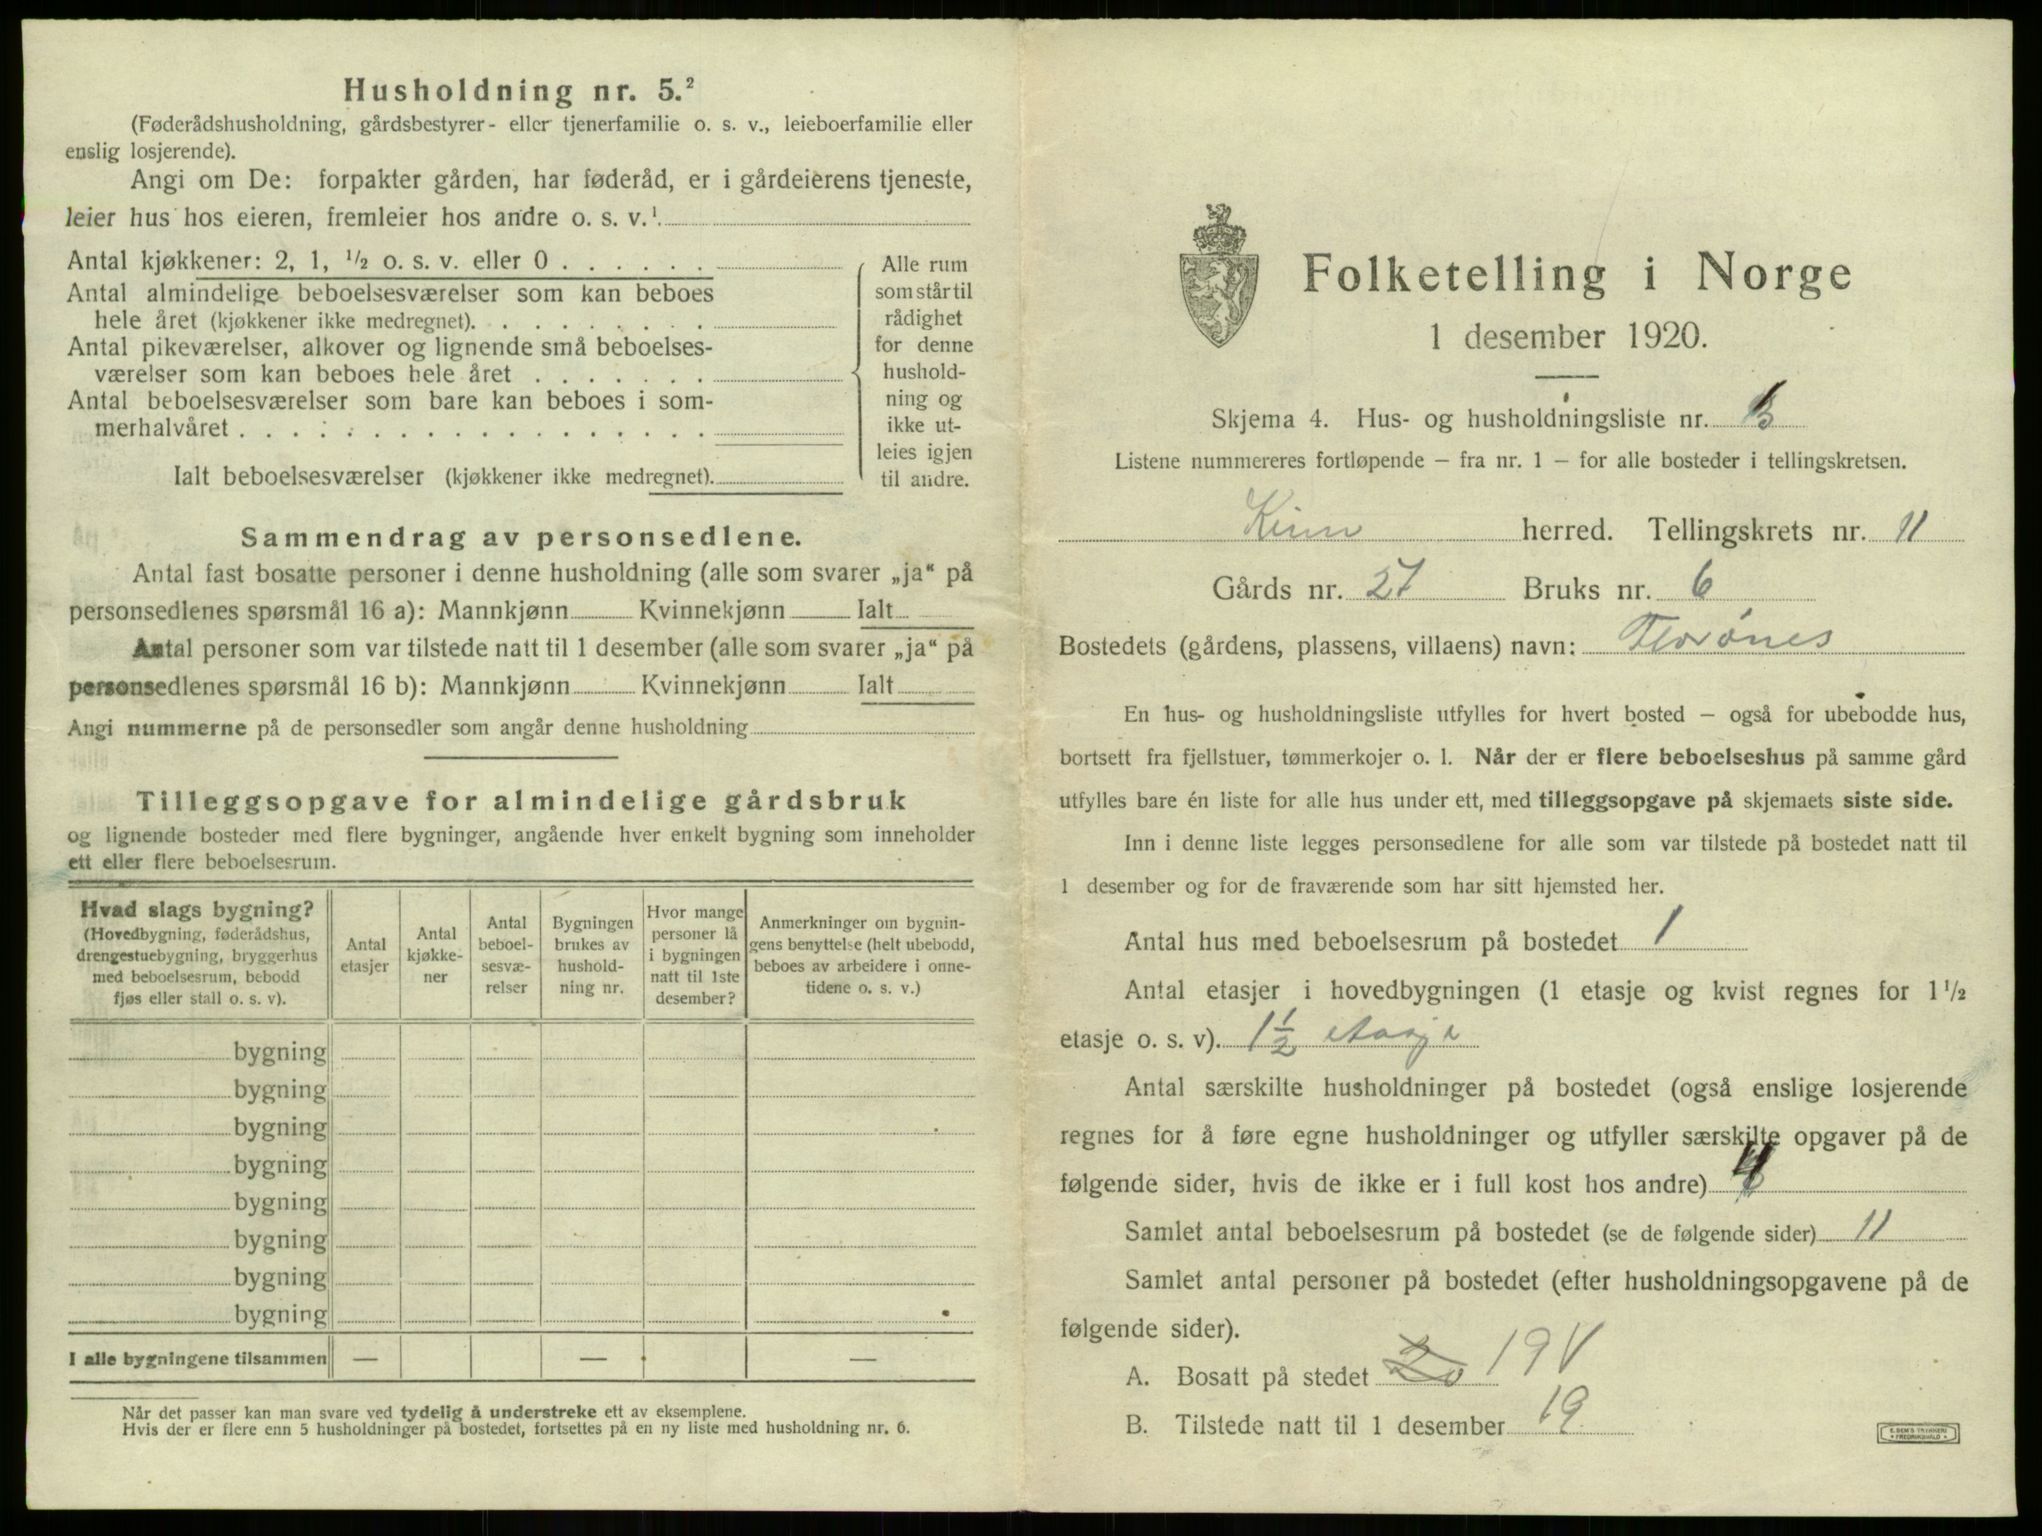 Husholdning nr. 5.²
(Føderådshusholdning, gårdsbestyrer- eller tjenerfamilie o. s. v., leieboerfamilie eller
enslig losjerende).
Angi om De: forpakter gården, har føderåd, er i gårdeierens tjeneste,
leier hus hos eieren, fremleier hos andre o. s. v.¹
Antal kjøkkener: 2, 1, ½ o. s. v. eller 0 . . . . . .
Antal almindelige beboelsesværelser som kan beboes
hele året (kjøkkener ikke medregnet). . . . . . . . .
Antal pikeværelser, alkover og lignende små beboelses-
værelser som kan beboes hele året . . . . . . .
Antal beboelsesværelser som bare kan beboes i som-
merhalvåret . . . . . . . . . . . . . . . . . .
Ialt beboelsesværelser (kjøkkener ikke medregnet).
Alle rum
som står til
rådighet
for denne
hushold-
ning og
ikke ut-
leies igjen
til andre.
Sammendrag av personsedlene.
Antal fast bosatte personer i denne husholdning (alle som svarer „ja“ på
personsedlenes spørsmål 16 a): Mannkjønn Kvinnekjønn Ialt
Antal personer som var tilstede natt til 1 desember (alle som svarer „ja“ på
personsedlenes spørsmål 16 b): Mannkjønn Kvinnekjønn Ialt
Angi nummerne på de personsedler som angår denne husholdning
Tilleggsopgave for almindelige gårdsbruk
og lignende bosteder med flere bygninger, angående hver enkelt bygning som inneholder
ett eller flere beboelsesrum.
Hvad slags bygning?
(Hovedbygning, føderådshus,
drengestuebygning, bryggerhus
med beboelsesrum, bebodd
fjøs eller stall o. s. v).
Antal
etasjer
Antal
kjøkke-
ner
Antal
beboel-
sesvæ-
relser
Bygningen
brukes av
hushold-
ning nr.
Hvor mange
personer lå
i bygningen
natt til 1ste
desember?
Anmerkninger om bygnin-
gens benyttelse (helt ubebodd,
beboes av arbeidere i onne-
tidene o. s. v.)
bygning
bygning
bygning
bygning
bygning
bygning
bygning
bygning
I alle bygningene tilsammen — — —
Når det passer kan man svare ved tydelig å understreke ett av eksemplene.
Hvis der er flere enn 5 husholdninger på bostedet, fortsettes på en ny liste med husholdning nr. 6.
Folketelling i Norge
1 desember 1920.
Skjema 4. Hus- og husholdningsliste nr.
Listene nummereres fortløpende – fra nr. 1 – for alle bosteder i tellingskretsen.
Kinn herred. Tellingskrets nr. 11
Gårds nr. 27 Bruks nr. 6
Bostedets (gårdens, plassens, villaens) navn: Florönes
En hus- og husholdningsliste utfylles for hvert bosted – også for ubebodde hus,
bortsett fra fjellstuer, tømmerkojer o. l. Når der er flere beboelseshus på samme gård
utfylles bare én liste for alle hus under ett, med tilleggsopgave på skjemaets siste side.
Inn i denne liste legges personsedlene for alle som var tilstede på bostedet natt til
1 desember og for de fraværende som har sitt hjemsted her.
Antal hus med beboelsesrum på bostedet 1
Antal etasjer i hovedbygningen (1 etasje og kvist regnes for 1 ½
etasje o. s. v). 1½ etasje
Antal særskilte husholdninger på bostedet (også enslige losjerende
regnes for å føre egne husholdninger og utfyller særskilte opgaver på de
følgende sider, hvis de ikke er i full kost hos andre) 4
Samlet antal beboelsesrum på bostedet (se de følgende sider) 11
Samlet antal personer på bostedet (efter husholdningsopgavene på de
følgende sider).
A. Bosatt på stedet 20 19 V
B. Tilstede natt til 1 desember 19